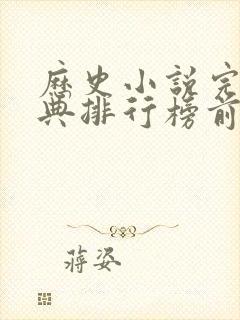 历史小说完
典排行榜前
蒋姿